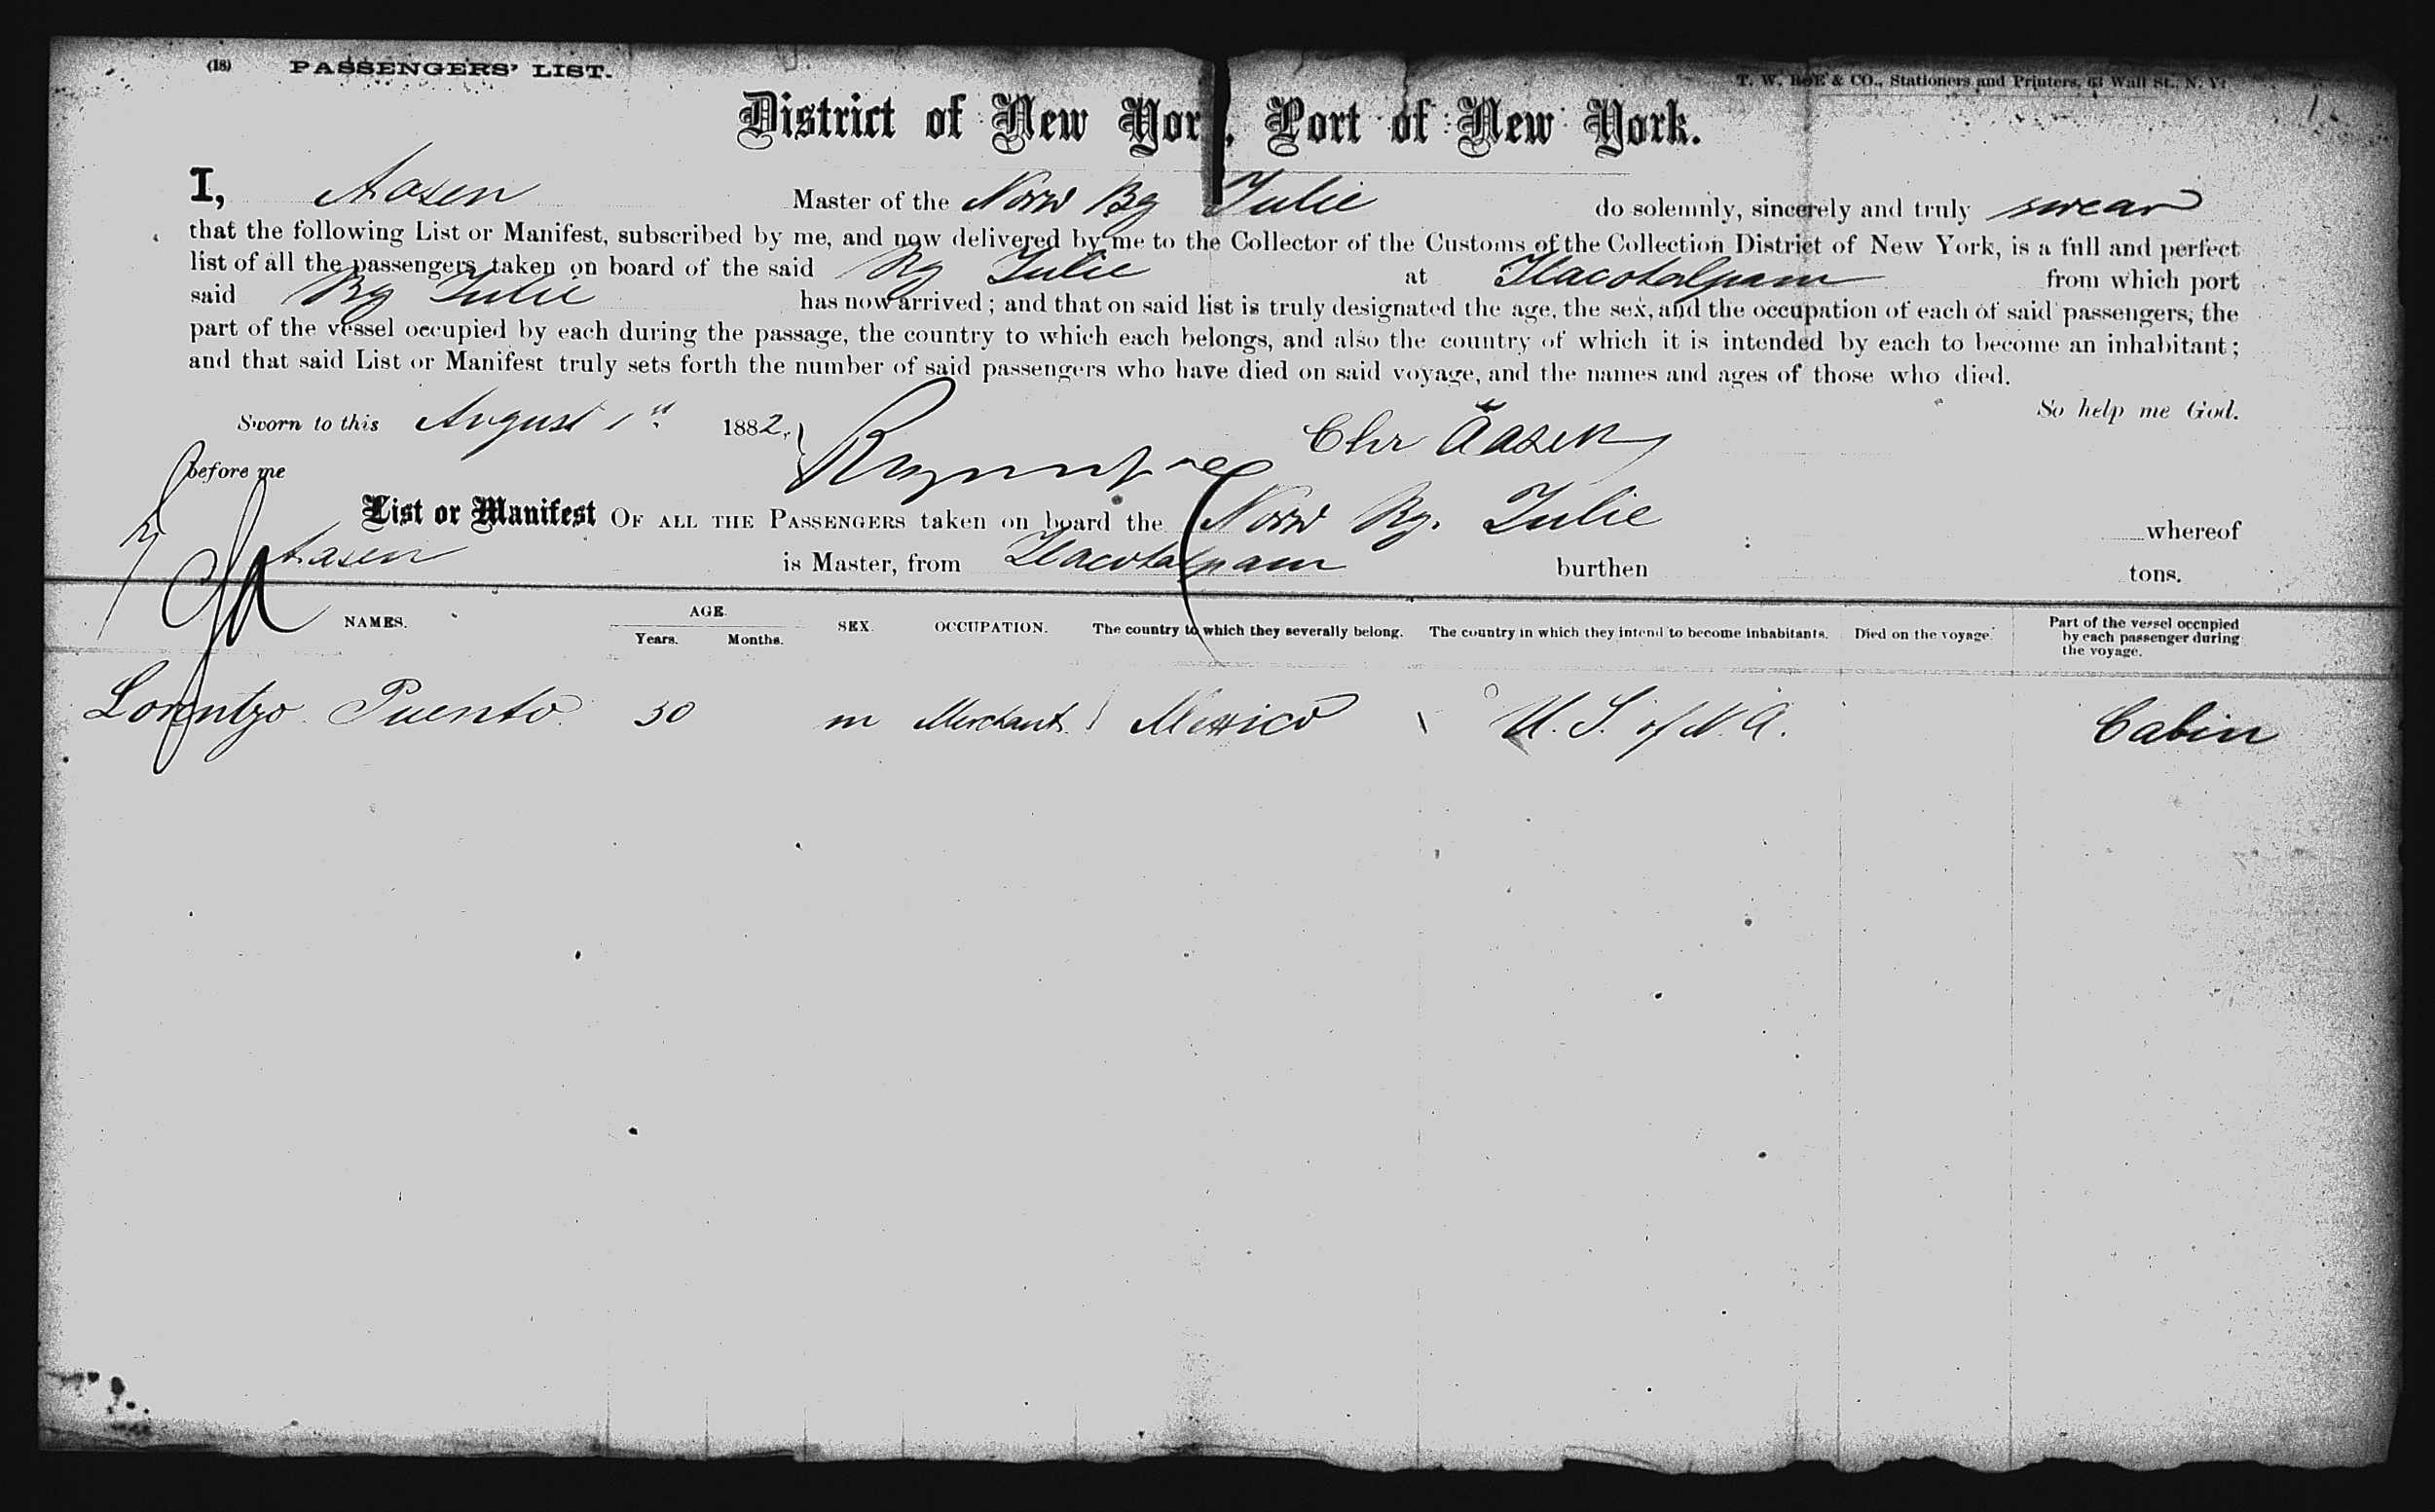 (18) PASSENGERS' LIST.
T. W. ROE & CO., Stationers and Printers, 63 Wall St., N. Y.
District of New Yor, Port of New York.
I, Aasen Master of the Norw Bg Julie do solemnly, sincerely and truly swear
that the following List or Manifest, subscribed by me, and now delivered by me to the Collector of the Customs of the Collection District of New York, is a full and perfect
list of all the passengers taken on board of the said Bg Julie at Tlacotalpam from which port
said Bg Julie has now arrived; and that on said list is truly designated the age, the sex, and the occupation of each of said passengers, the
part of the vessel occupied by each during the passage, the country to which each belongs, and also the country of which it is intended by each to become an inhabitant;
and that said List or Manifest truly sets forth the number of said passengers who have died on said voyage, and the names and ages of those who died.
So help me God.
Sworn to this August 1st 1882, Chr Aasen
before me
List or Manifest OF ALL THE PASSENGERS taken on board the Norw Bg. Julie whereof
Aasen is Master, from Tlacotalpam burthen tons.
NAMES. AGE. Years. Months. SEX. OCCUPATION. The country to which they severally belong. The country in which they intend to become inhabitants. Died on the voyage. Part of the vessel occupied by each passenger during the voyage.
Lorentzo Puento 30 m Merchant Mexico U. S. of N. A. Cabin